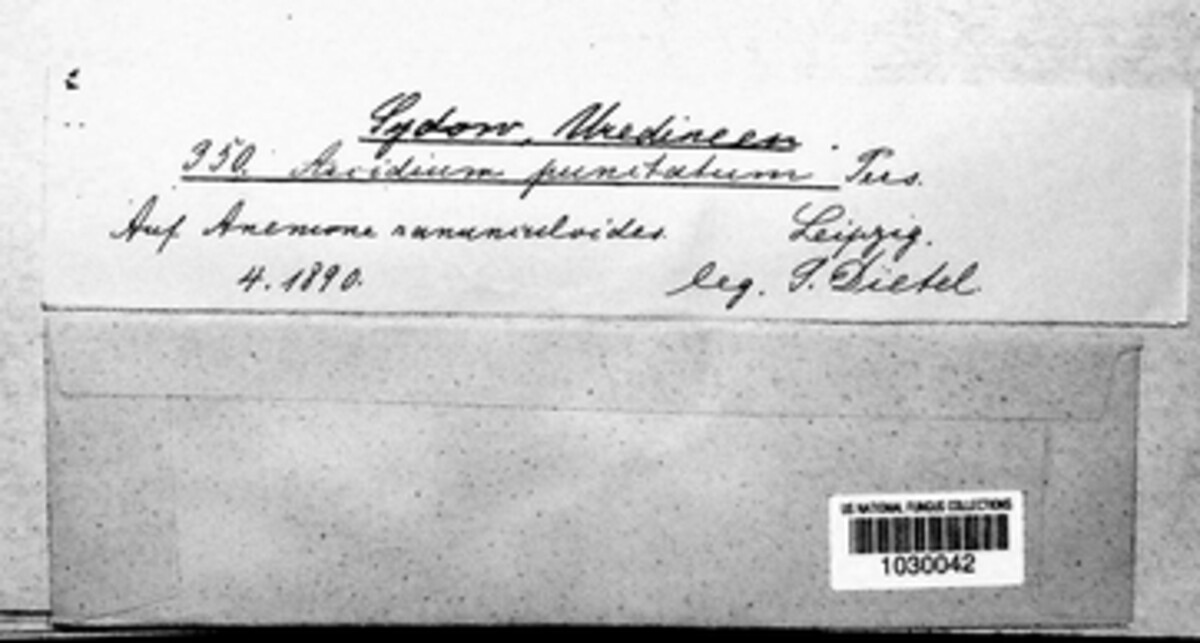 Sydow, Uredineen.
350. Aecidium punctatum Pers.
Auf Anemone ranunculoides. Leipzig.
4. 1890. leg. P. Dietel.
US NATIONAL FUNGUS COLLECTIONS
1030042